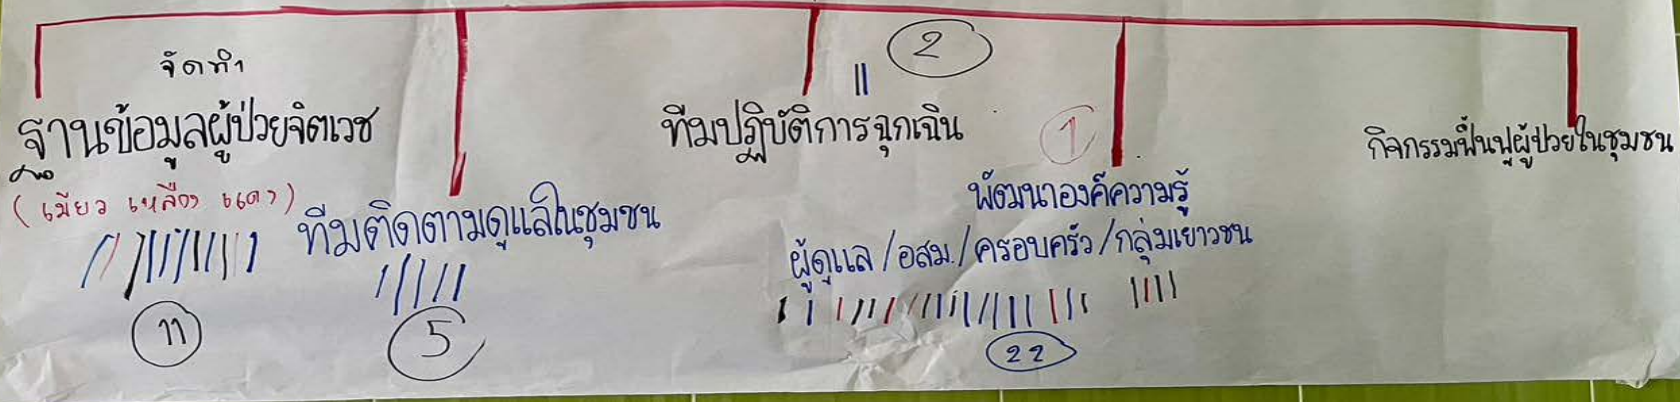 จัดทำ
ฐานข้อมูลผู้ป่วยจิตเวช
(เขียว เหลือง แดง)
11
ทีมติดตามดูแลในชุมชน
5
2
ทีมปฏิบัติการฉุกเฉิน
1
พัฒนาองค์ความรู้
ผู้ดูแล/อสม./ครอบครัว/กลุ่มเยาวชน
22
กิจกรรมฟื้นฟูผู้ป่วยในชุมชน